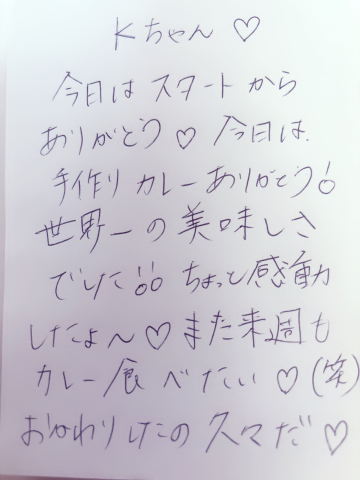 Kちゃん♡
今日はスタートから
ありがとう♡ 今日は
手作りカレーありがとう!
世界一の美味しさ
でした!! ちょっと感動
したよ〜♡また来週も
カレー食べたい♡(笑)
おかわりしたの久々だ♡